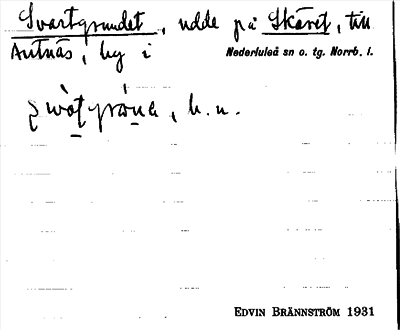 Svartgrundet, udde på Skäret, till
Antnäs, by i Nederluleå sn o. tg. Norrb. l.
h. n.
EDVIN BRÄNNSTRÖM 1931